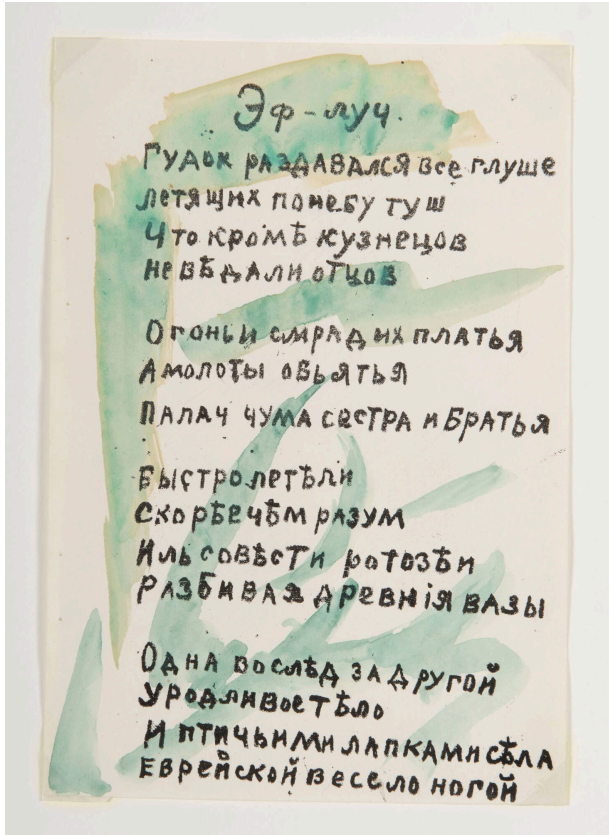 Эф-луч.
Гудок раздавался все глуше
летящих понебу туш
Что кромѣ кузнецов
не вѣдали отцов
Огонь и смрад их платья
А молоты обьятья
Палач чума сестра и братья
Быстро летѣли
Скорѣе чѣм разум
Иль совѣсти ротозѣи
Разбивая древнія вазы
Одна вослѣд за другой
Уродливое тѣло
И птичьими лапками сѣла
Еврейской весело ногой